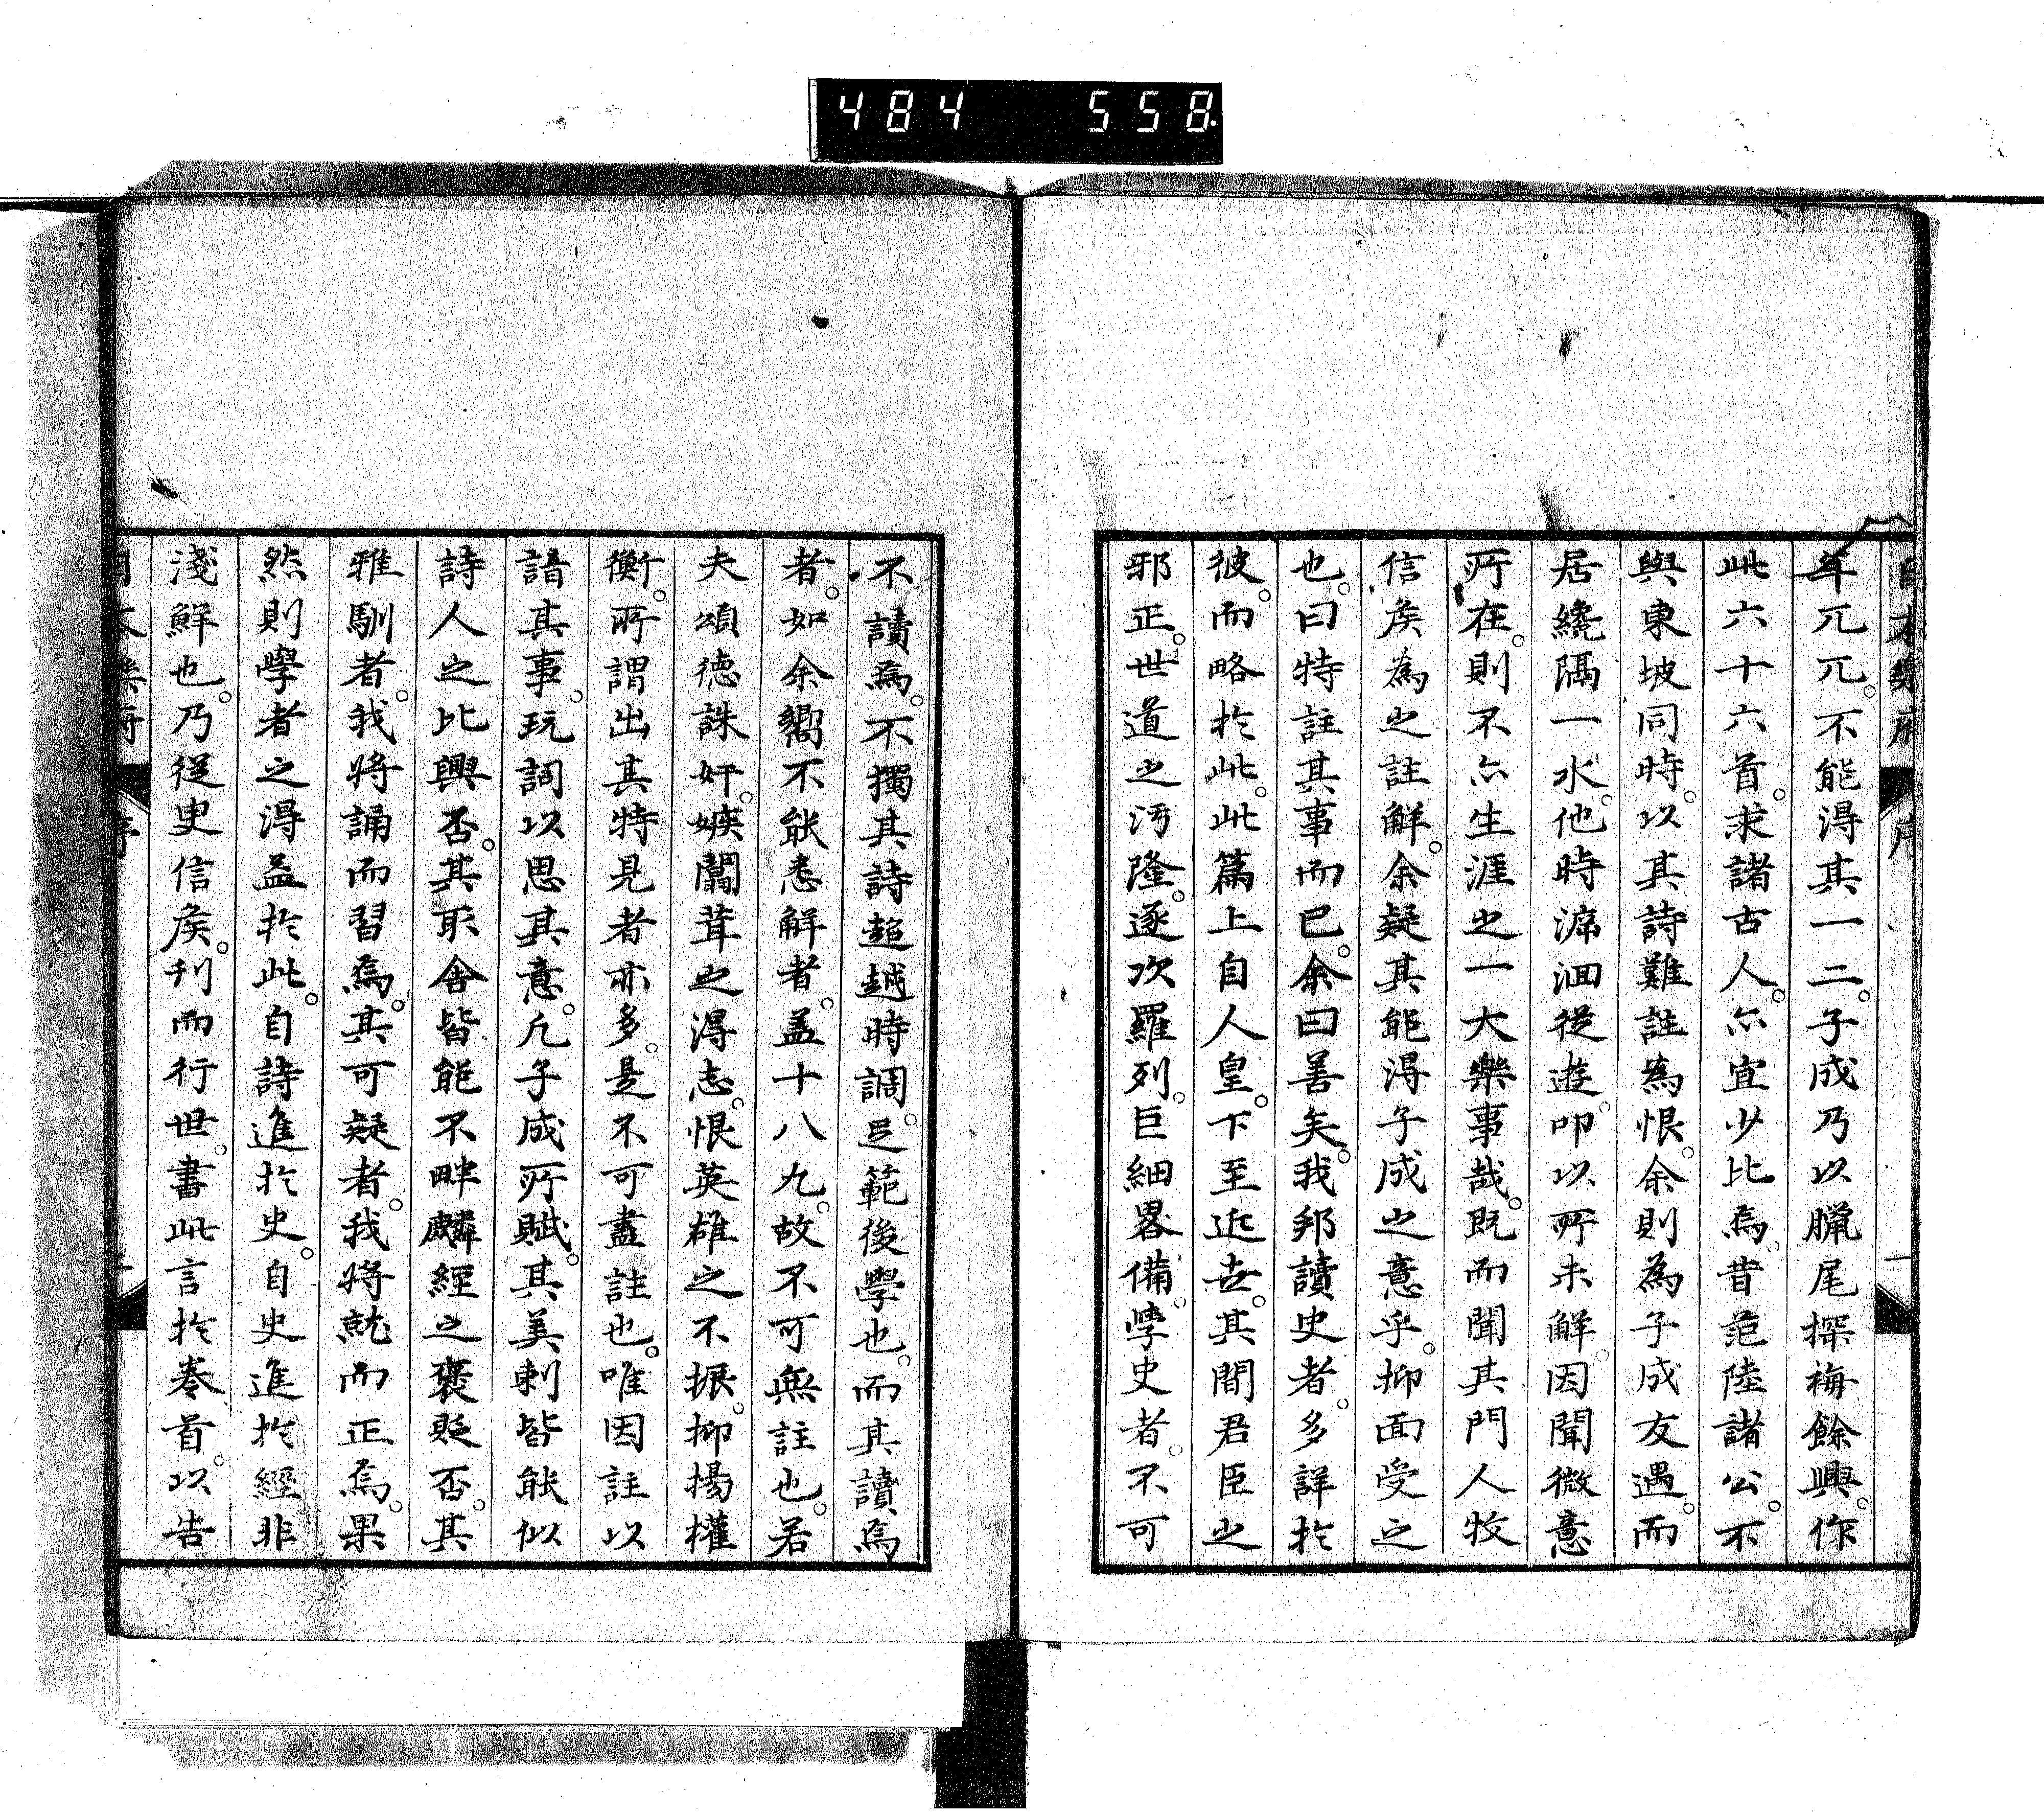 484 558
日本樂府 序 一
年兀兀。不能得其一二。子成乃以臘尾探梅餘興。作
此六十六首。求諸古人。亦宜少比焉。昔范陸諸公。不
與東坡同時。以其詩難註為恨。余則為子成友遇。而
居繞隔一水。他時溯洄從遊。叩以所未解。因聞微意
所在。則不亦生涯之一大樂事哉。既而聞其門人牧
信侯為之註解。余疑其能得子成之意乎。抑面受之
也。曰特註其事而已。余曰善矣。我邦讀史者。多詳於
彼。而略於此。此篇上自人皇。下至近世。其間君臣之
邪正。世道之汚隆。逐次羅列。巨細畧備。學史者。不可
不讀焉。不獨其詩超越時調。足範後學也。而其讀焉
者。如余嚮不能悉解者。蓋十八九。故不可無註也。若
夫頌德誅奸。嫉闒茸之得志。恨英雄之不振。抑揚權
衡。所謂出其特見者亦多。是不可盡註也。唯因註以
諳其事。玩詞以思其意。凡子成所賦。其美刺皆能似
詩人之比興否。其取舍皆能不畔麟經之褒貶否。其
雅馴者。我將誦而習焉。其可疑者。我將就而正焉。果
然則學者之得益於此。自詩進於史。自史進於經非
淺鮮也。乃從臾信侯。刊而行世。書此言於卷首。以告
日本樂府 序